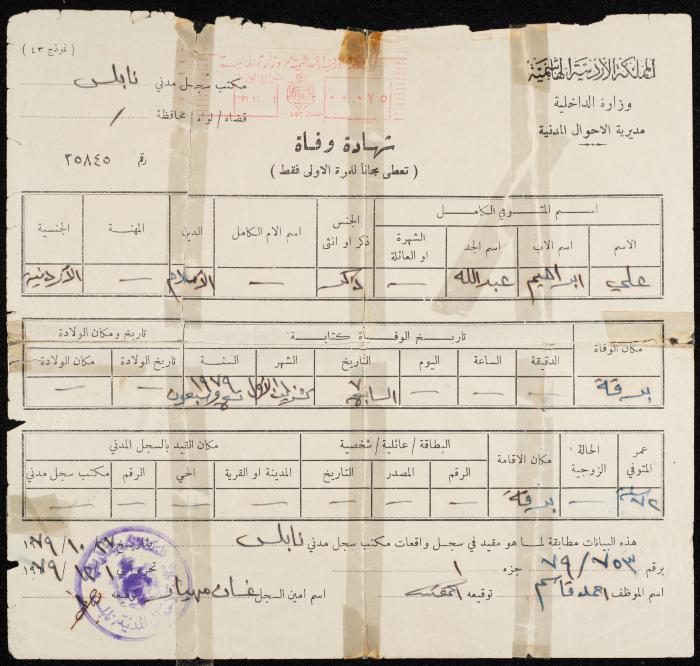 ( نموذج ٤٣ )
المملكة الأردنية الهاشمية
وزارة الداخلية
مديرية الاحوال المدنية
مكتب سجل مدني نابلس
قضاء / لواء / محافظة /
رقم ٣٥٨٤٥
٠٠٠٧٥
شهادة وفاة
( تعطى مجاناً للمرة الاولى فقط )
اسم المتوفي الكامل
الاسم اسم الاب اسم الجد الشهرة او العائلة الجنس ذكر او انثى اسم الام الكامل الدين المهنة الجنسية
علي ابراهيم عبدالله — ذكر — الاسلام — الأردنية
مكان الوفاة تاريخ الوفاة كتابة تاريخ ومكان الولادة
الدقيقة الساعة اليوم التاريخ الشهر السنة تاريخ الولادة مكان الولادة
برقة — — — ٧ السابع تشرين الاول ١٩٧٩ تسع وسبعون — —
عمر المتوفي الحالة الزوجية مكان الاقامة البطاقة / عائلية / شخصية مكان القيد بالسجل المدني
الرقم المصدر التاريخ المدينة او القرية الحي الرقم مكتب سجل مدني
٨٢ سنة — برقة — — — — — — —
هذه البيانات مطابقة لما هو مقيد في سجل واقعات مكتب سجل مدني نابلس ١٩٧٩/١٠/١٧
برقم ٧٩/٧٥٣ جزء ١ ١٩٧٩
اسم الموظف احمد قاسم توقيعه اسم امين السجل غسان توقيعه